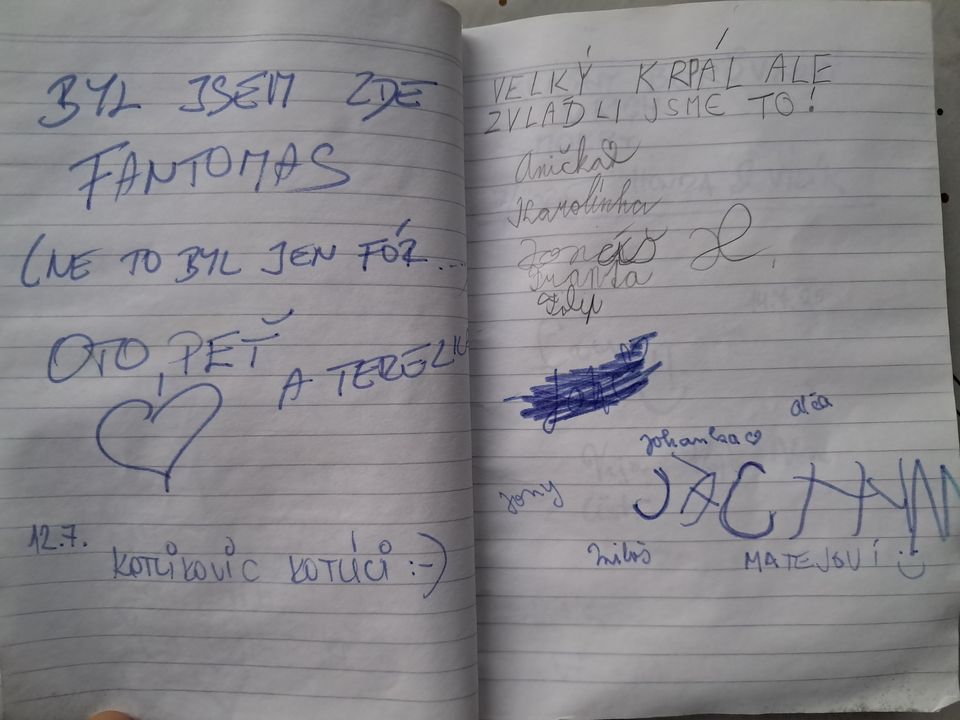 BYL JSEM ZDE
FANTOMAS
(NE TO BYL JEN FÓR...
OTO, PEŤ
A TEREZKA
12.7.
KOTŮKOVIC KOTÚCI :-)
VELKÝ KRPÁL ALE
ZVLÁDLI JSME TO!
Anička
Karolínka
Franta
Filip
alča
Johanka
Jony
JÁCHYM
Miloš
MATEJOVÍ